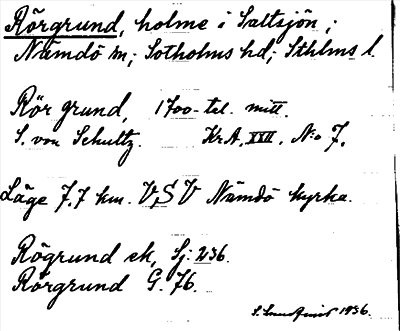 Rörgrund, holme i Saltsjön;
Nämdö sn; Sotholms hd; Sthlms l.
Rör grund, 1700-tal. mitt.
S. von Schultz. Kr.A. XXII. N:o 7.
Läge 7,7 km. VSV Nämdö kyrka.
Rögrund ek, Sj. 236.
Rörgrund G. 76.
1936.